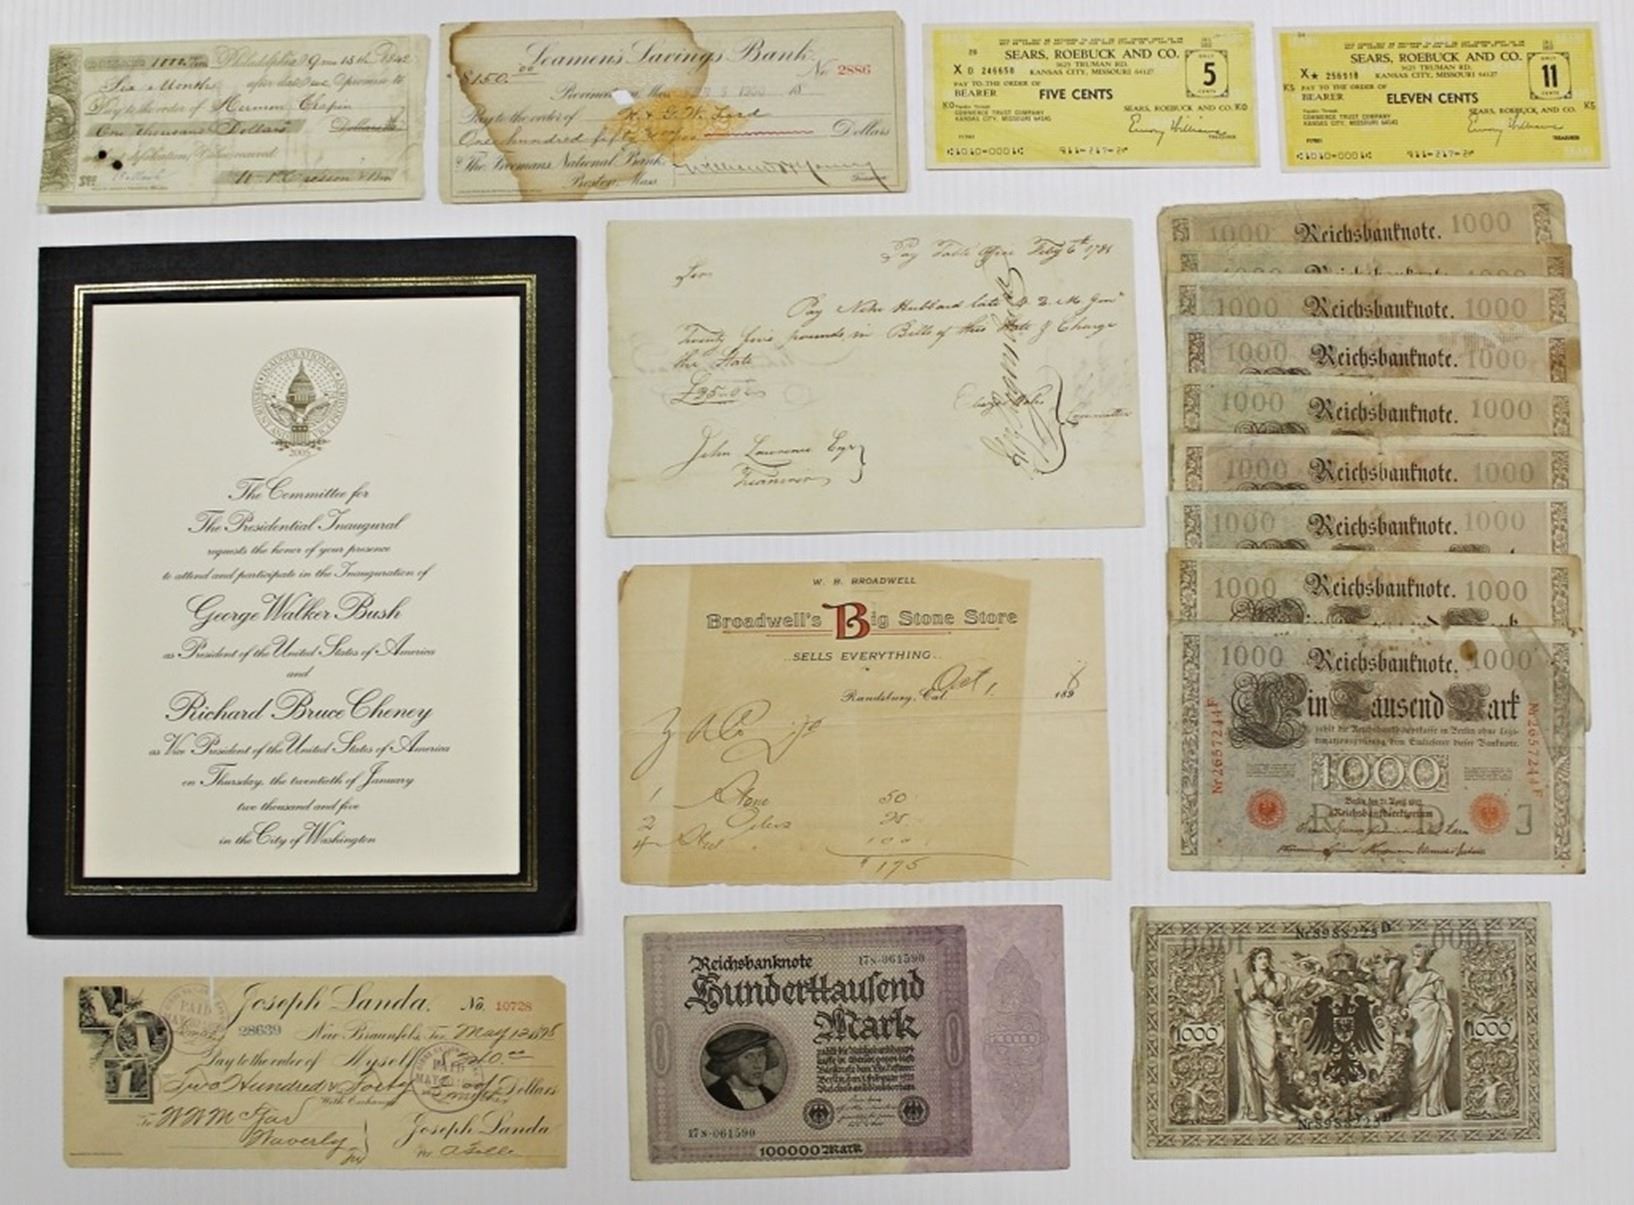 1000.
Philadelphia 9 mo 15th 1842
Six Months after date we promise to
Pay to the order of Hermon Chapin
One thousand Dollars Dollars
Seamen's Savings Bank
$150.00 No. 2886
Pay to the order of N. & G.W. Lord
One hundred fifty Dollars
The Firemans National Bank
Boston, Mass
Treasurer
SEARS, ROEBUCK AND CO.
3625 TRUMAN RD.
X D 246658 KANSAS CITY, MISSOURI 64127
PAY TO THE ORDER OF
BEARER FIVE CENTS
ONLY
5
CENTS
KO Payable Through SEARS, ROEBUCK AND CO. KO
COMMERCE TRUST COMPANY
KANSAS CITY, MISSOURI 64141
Emory Williams
TREASURER
SEARS, ROEBUCK AND CO.
3625 TRUMAN RD.
X★ 256918 KANSAS CITY, MISSOURI 64127
PAY TO THE ORDER OF
BEARER ELEVEN CENTS
ONLY
11
CENTS
KS Payable Through SEARS, ROEBUCK AND CO. KS
COMMERCE TRUST COMPANY
KANSAS CITY, MISSOURI 64141
Emory Williams
TREASURER
2005
The Committee for
The Presidential Inaugural
requests the honor of your presence
to attend and participate in the Inauguration of
George Walker Bush
as President of the United States of America
and
Richard Bruce Cheney
as Vice President of the United States of America
on Thursday, the twentieth of January
two thousand and five
in the City of Washington
Pay Table Office Feby 6th 1781
Sir
Pay Nehe Hubbard late D Q M Genl
Twenty five pounds in Bills of this State & Charge
the State
John Lawrence Esqr
Treasurer
Committee
W. B. BROADWELL
Broadwell's Big Stone Store
..SELLS EVERYTHING..
Randsburg, Cal. Oct 1. 1898
1 50
2 25
4 100
$ 175
1000 Reichsbanknote. 1000
1000 Reichsbanknote.
1000 Reichsbanknote. 1000
1000 Reichsbanknote. 1000
1000 Reichsbanknote. 1000
1000 Reichsbanknote. 1000
1000 Reichsbanknote. 1000
1000 Reichsbanknote. 1000
1000 Reichsbanknote. 1000
Ein Tausend Mark
zahlt die Reichsbankhauptkasse in Berlin ohne Legi-
timationsprüfung dem Einlieferer dieser Banknote.
1000
Nr 2657244 F
Nr 2657244 F
Berlin, den 21. April 1910
Reichsbankdirektorium
J
Joseph Landa. No. 10728
28639 New Braunfels, Tex. May 12 1898
Pay to the order of Myself $240.00
Two Hundred & Forty Dollars
With Exchange
To W W McFar
Waverly
Joseph Landa
PAID
PAID
Reichsbanknote 17S·061590
Hunderttausend
Mark
zahlt die Reichsbankhaupt-
kasse in Berlin gegen diese
Banknote dem Einlieferer.
Berlin, den 1. Februar 1923
Reichsbankdirektorium
17S·061590
100000 Mark
Nr 8988225 D
1000
1000
1000 1000
Nr 8988225 D